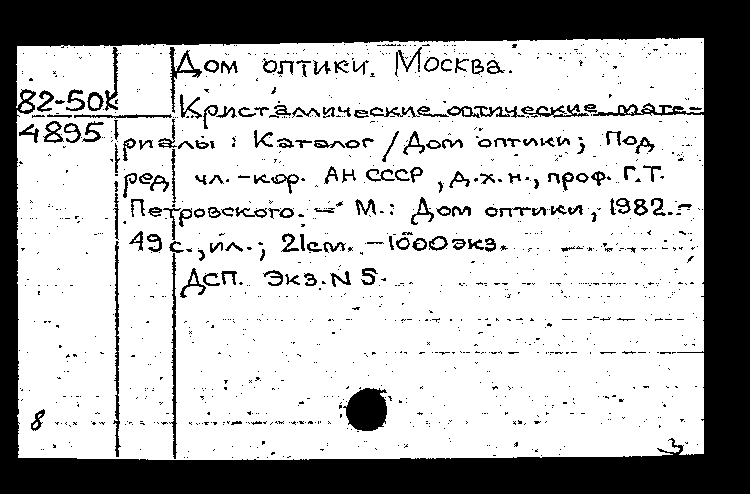 Дом оптики. Москва.
82-50К
4895
Кристаллические оптические мате-
риалы : Каталог / Дом оптики ; Под
ред. чл.-кор. АН СССР , д.х.н., проф. Г.Т.
Петровского. - М.: Дом оптики, 1982.-
49 с., ил. ; 21см. -1000экз.
ДСП. Экз. N 5.
8
3